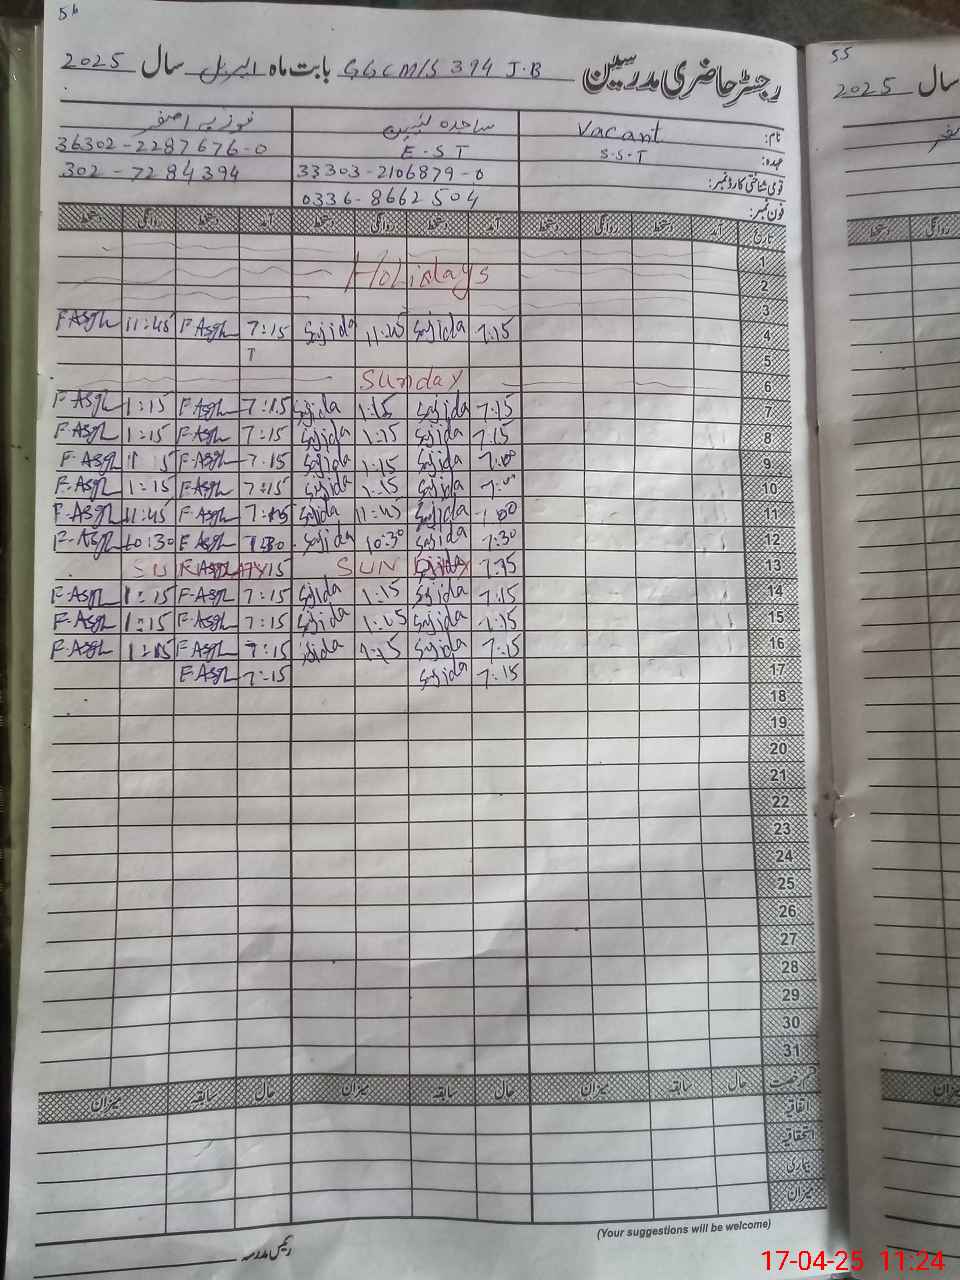 54
رجسٹر حاضری مدرسین GGCM/S 394 J.B بابت ماہ اپریل سال 2025
نام: Vacant ساجدہ فوزیہ اصغر
عہدہ: S.S.T E.S.T 36302-2287676-0
قومی شناختی کارڈ نمبر: 33303-2106879-0 302-7284394
فون نمبر: 0336-8662504
تاریخ آمد دستخط روانگی دستخط آمد دستخط روانگی دستخط آمد دستخط روانگی دستخط
1
2 Holidays
3
4 7:15 Sajida 11:45 Sajida 7:15 F.Asgh 11:45 F.Asgh
5 T
6 Sunday
7 7:15 Sajida 1:15 Sajida 7:15 F.Asgh 1:15 F.Asgh
8 7:15 Sajida 1:15 Sajida 7:15 F.Asgh 1:15 F.Asgh
9 7:00 Sajida 1:15 Sajida 7:15 F.Asgh F.Asgh
10 Sajida 1:15 Sajida 7:15 F.Asgh 1:15 F.Asgh
11 Sajida 11:45 Sajida F.Asgh 11:45 F.Asgh
12 7:30 Sajida 10:30 Sajida F.Asgh 10:30 F.Asgh
13 7:15 Sajida SUNDAY 15 F.Asgh SUNDAY
14 7:15 Sajida 1:15 Sajida 7:15 F.Asgh 1:15 F.Asgh
15 Sajida Sajida 7:15 F.Asgh 1:15 F.Asgh
16 7:15 Sajida 1:15 7:15 F.Asgh F.Asgh
17 7:15 Sajida 7:15 F.Asgh
18
19
20
21
22
23
24
25
26
27
28
29
30
31
رخصت حال سابقہ میزان حال سابقہ میزان حال سابقہ میزان
اتفاقیہ
استحقاقیہ
بیماری
میزان
(Your suggestions will be welcome)
رئیس مدرسہ
55
سال 2025
روانگی دستخط
میزان
17-04-25 11:24